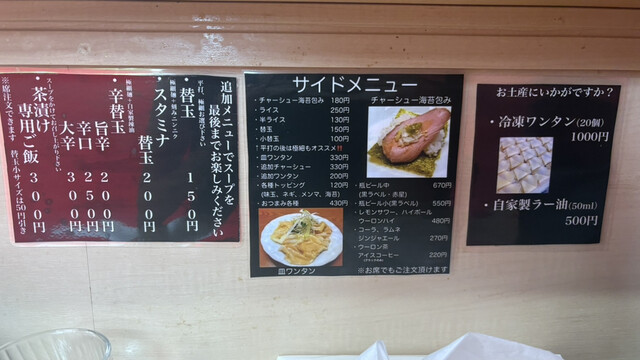 追加メニューでスープを
最後までお楽しみください
平打、極細お選び下さい
・替玉 150円
極細麺+刻みニンニク
・スタミナ
替玉 200円
極細麺+自家製辣油
・辛替玉
旨辛 200円
辛口 250円
大辛 300円
スープをかけてお召し上がり下さい
・茶漬け
専用ご飯 300円
※席注文できます 替玉小サイズは50円引き
サイドメニュー
・チャーシュー海苔包み 180円
・ライス 250円
・半ライス 130円
・替玉 150円
・小替玉 100円
↑平打の後は極細もオススメ!!
・皿ワンタン 330円
・追加チャーシュー 330円
・追加ワンタン 200円
・各種トッピング 120円
(味玉、ネギ、メンマ、海苔)
・おつまみ各種 430円
皿ワンタン
チャーシュー海苔包み
・瓶ビール中 670円
(黒ラベル・赤星)
・瓶ビール小(黒ラベル) 550円
・レモンサワー、ハイボール
・ウーロンハイ 480円
・コーラ、ラムネ
ジンジャエール 270円
・ウーロン茶
アイスコーヒー 220円
※お席でもご注文頂けます
お土産にいかがですか?
・冷凍ワンタン(20個)
1000円
・自家製ラー油(50ml)
500円